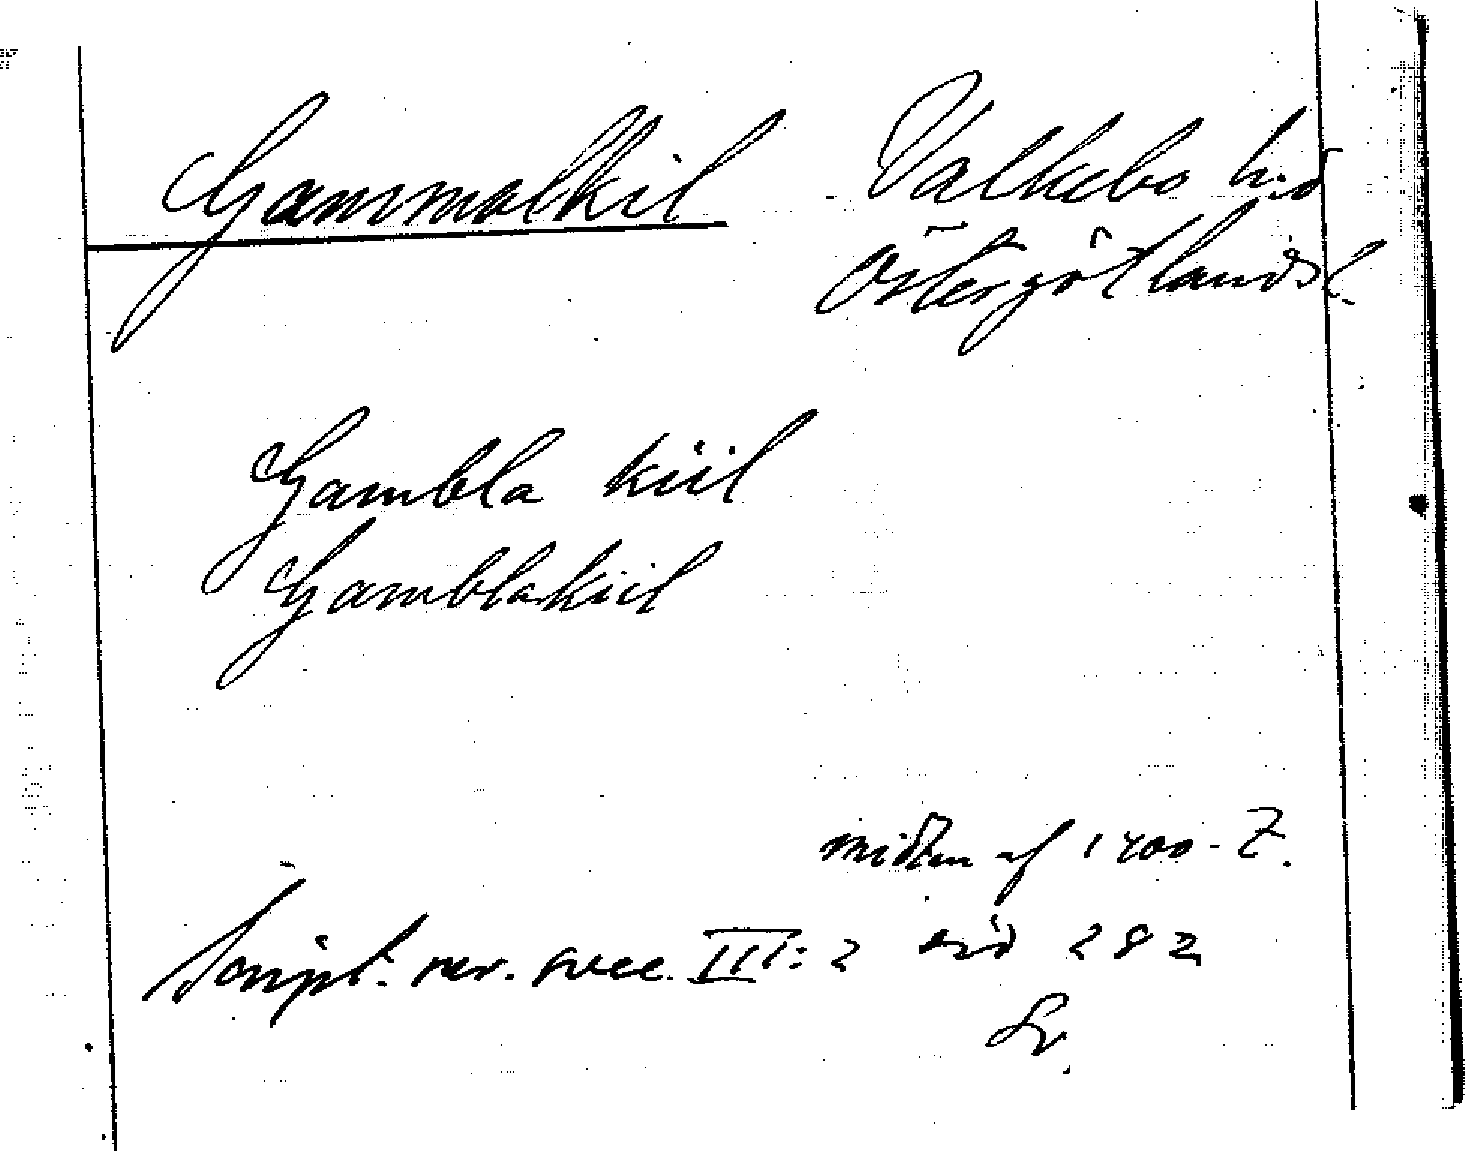 Gammalkil Valkebo hd
Östergötlands l.
Gambla kiil
Gamblakiil
midten af 1400-t.
Script. rer. svec. III:2 sid 282
Sv.